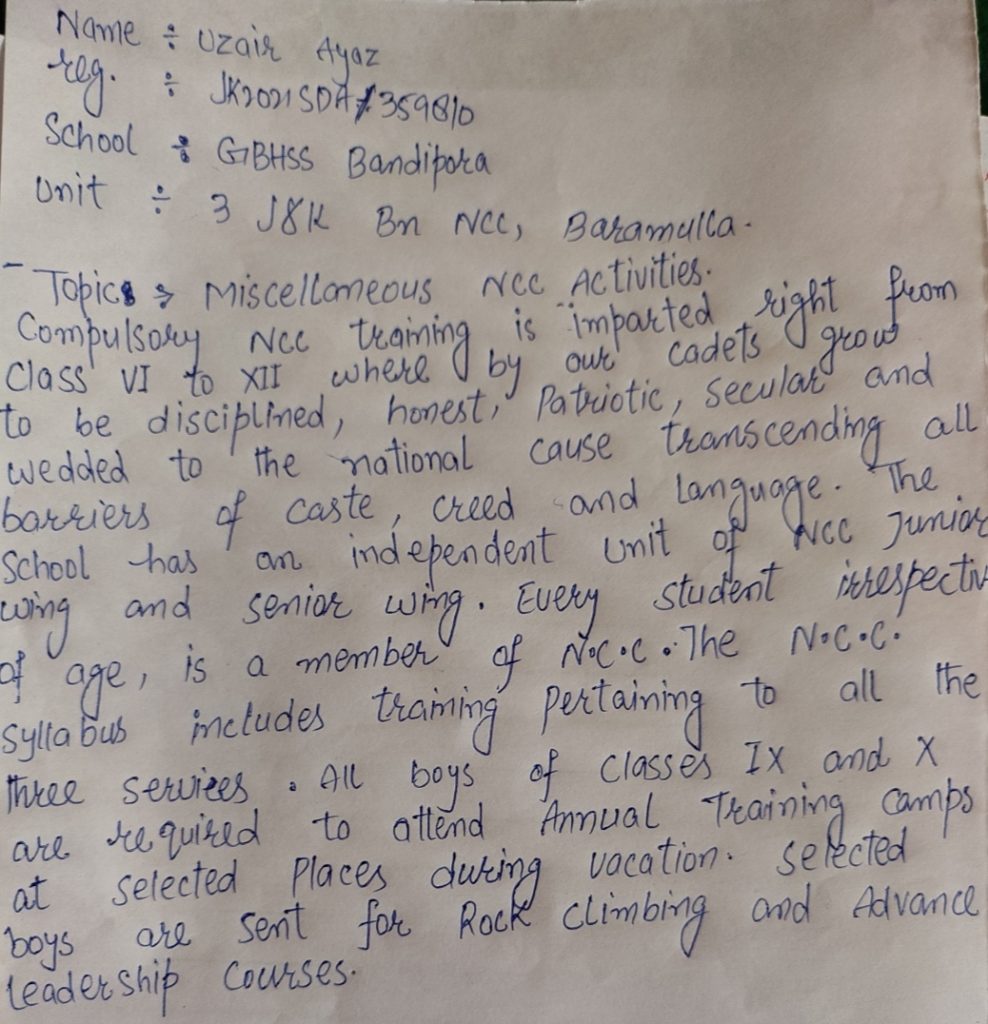 Name ÷ Uzair Ayaz
reg. ÷ JK2021SDA1359810
School ÷ GBHSS Bandipora
Unit ÷ 3 J&K Bn NCC, Baramulla.
- Topic → Miscellaneous NCC Activities.
Compulsory NCC training is imparted right from
Class VI to XII where by our cadets grow
to be disciplined, honest, Patriotic, Secular and
wedded to the national cause transcending all
barriers of caste, creed and Language. The
School has an independent Unit of NCC Junior
wing and senior wing. Every student irrespectiv
of age, is a member of N.C.C. The N.C.C.
Syllabus includes training pertaining to all the
three services. All boys of classes IX and X
are required to attend Annual Training camps
at selected Places during vacation. selected
boys are sent for Rock climbing and Advance
leadership Courses.